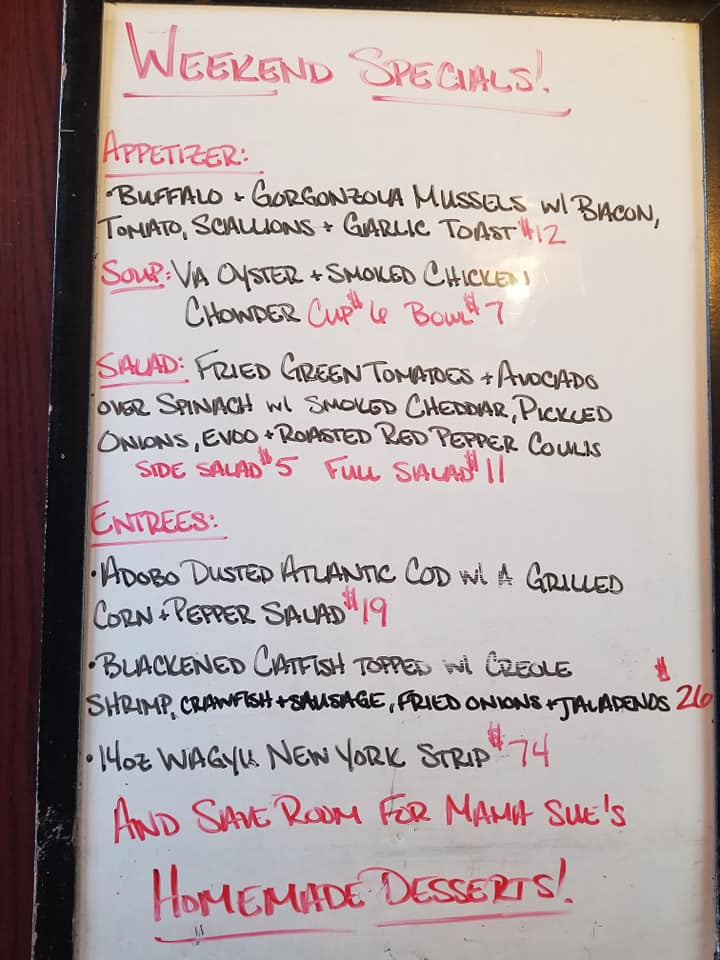 WEEKEND SPECIALS!
APPETIZER:
•BUFFALO + GORGONZOLA MUSSELS W/ BACON,
TOMATO, SCALLIONS + GARLIC TOAST $12
SOUP: VA OYSTER + SMOKED CHICKEN
CHOWDER CUP $6 BOWL $7
SALAD: FRIED GREEN TOMATOES + AVOCADO
OVER SPINACH W/ SMOKED CHEDDAR, PICKLED
ONIONS, EVOO + ROASTED RED PEPPER COULIS
SIDE SALAD $5 FULL SALAD $11
ENTREES:
•ADOBO DUSTED ATLANTIC COD W/ A GRILLED
CORN + PEPPER SALAD $19
•BLACKENED CATFISH TOPPED W/ CREOLE
SHRIMP, CRAWFISH + SAUSAGE, FRIED ONIONS + JALAPENOS $26
•14OZ WAGYU NEW YORK STRIP $74
AND SAVE ROOM FOR MAMA SUE'S
HOMEMADE DESSERTS!